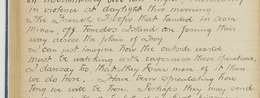 in violence at daylight this morning.
The French Troops that landed in Asia
Minor, off Tenedos Island are forcing their
way across the plain of Troy.
I can just imagine how the outside world
must be watching with eagerness these operations,
I daresay to that they know more of it than
we do here. I have been speculating how
long we will be here. Perhaps they may send